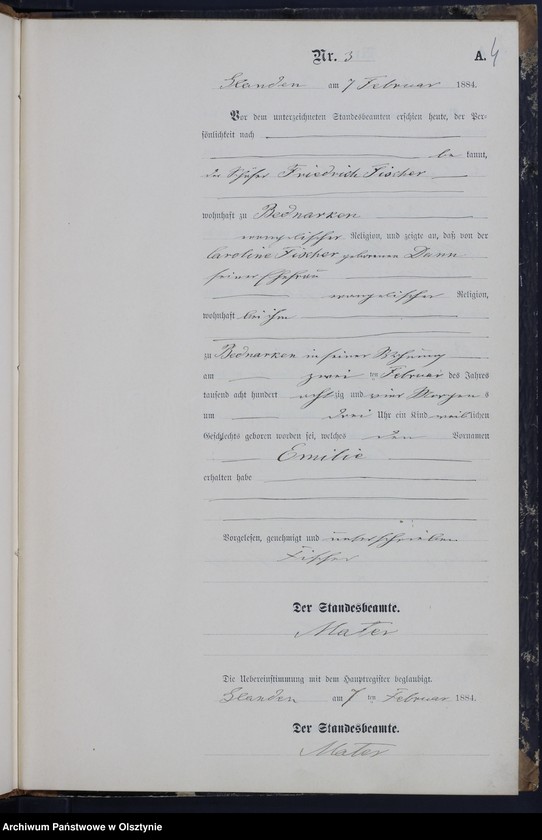 Nr. 3
A. 4
Glanden am 7 Februar 1884.
Vor dem unterzeichneten Standesbeamten erschien heute, der Per-
sönlichkeit nach
be kannt,
der Schäfer Friedrich Fischer
wohnhaft zu Bednarken
evangelischer Religion, und zeigte an, daß von der
Caroline Fischer geborenen Dann
seiner Ehefrau
evangelischer Religion,
wohnhaft bei ihm
zu Bednarken in seiner Wohnung
am zwei ten Februar des Jahres
tausend acht hundert acht zig und vier Morgens
um drei Uhr ein Kind weiblichen
Geschlechts geboren worden sei, welches den Vornamen
Emilie
erhalten habe
Vorgelesen, genehmigt und unterschrieben
Fischer
Der Standesbeamte.
Mater
Die Uebereinstimmung mit dem Hauptregister beglaubigt.
Glanden am 7 ten Februar 1884.
Der Standesbeamte.
Mater
Archiwum Państwowe w Olsztynie